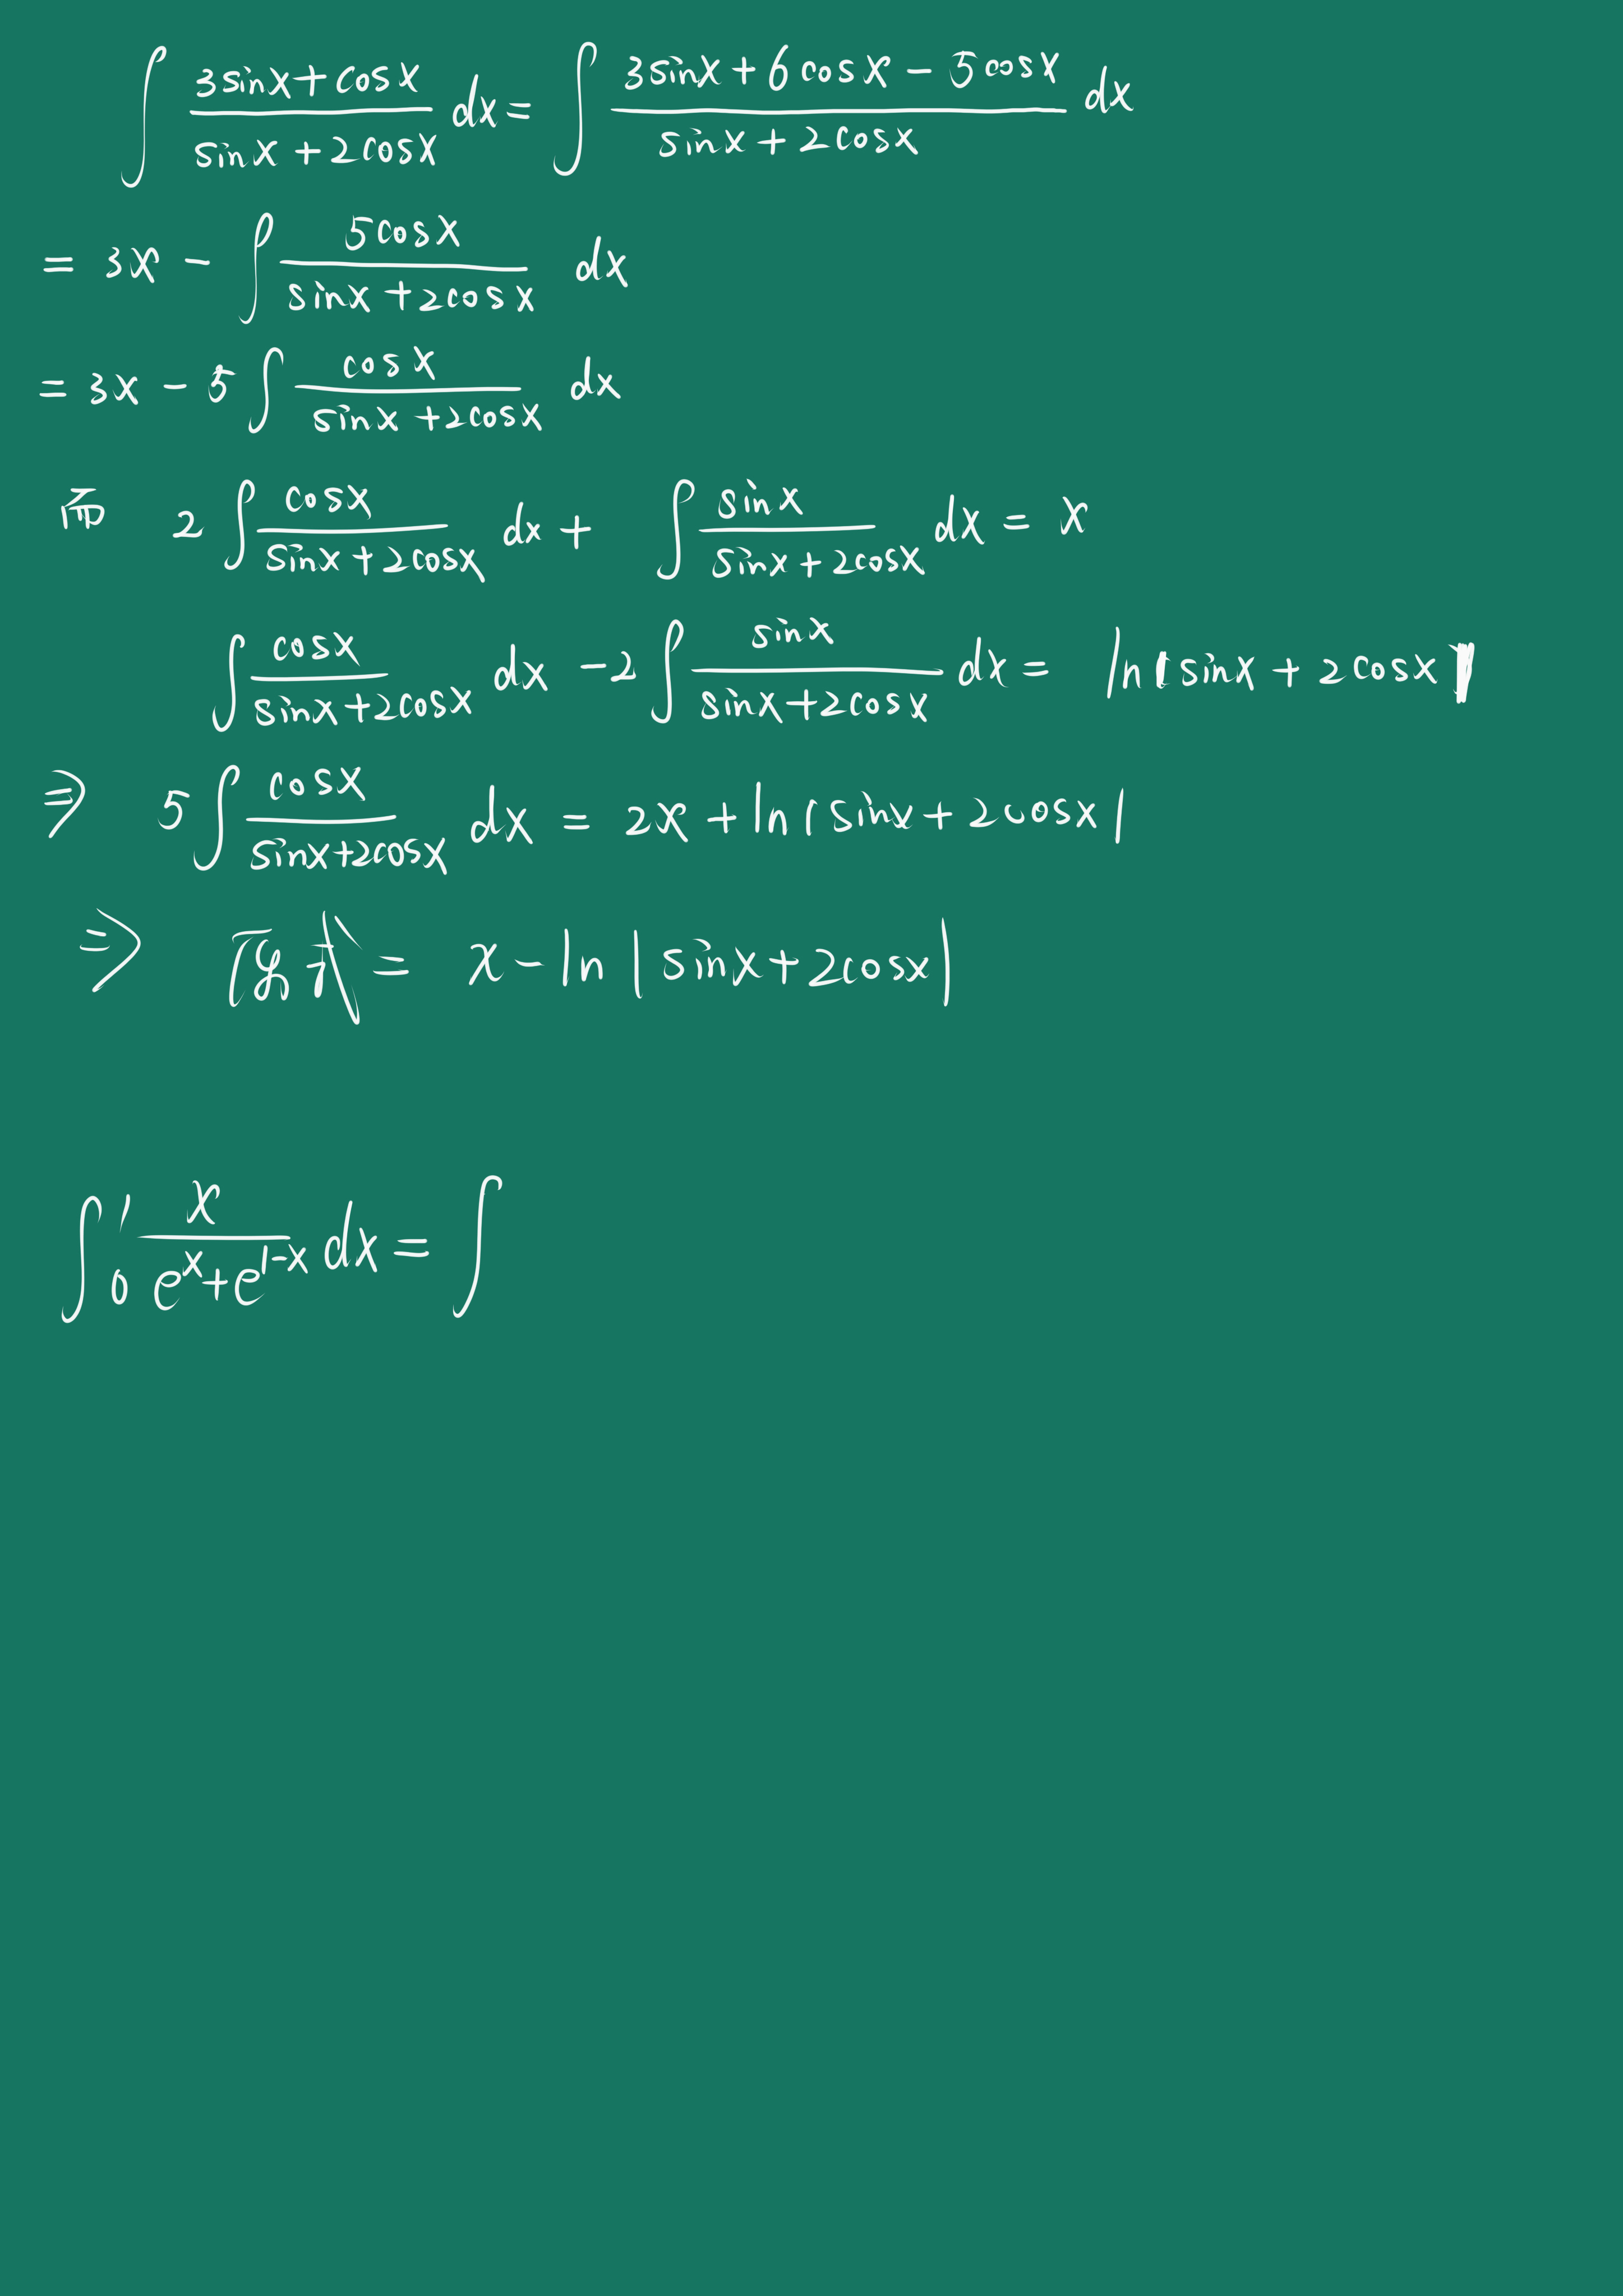 ∫ (3sinx+cosx)/(sinx+2cosx) dx = ∫ (3sinx+6cosx-5cosx)/(sinx+2cosx) dx
= 3x - ∫ 5cosx/(sinx+2cosx) dx
= 3x - 5∫ cosx/(sinx+2cosx) dx
而 2∫ cosx/(sinx+2cosx) dx + ∫ sinx/(sinx+2cosx) dx = x
∫ cosx/(sinx+2cosx) dx - 2∫ sinx/(sinx+2cosx) dx = ln|sinx+2cosx|
⇒ 5∫ cosx/(sinx+2cosx) dx = 2x + ln|sinx+2cosx|
⇒ 原式 = x - ln|sinx+2cosx|
∫₀¹ x/(eˣ+e¹⁻ˣ) dx = ∫